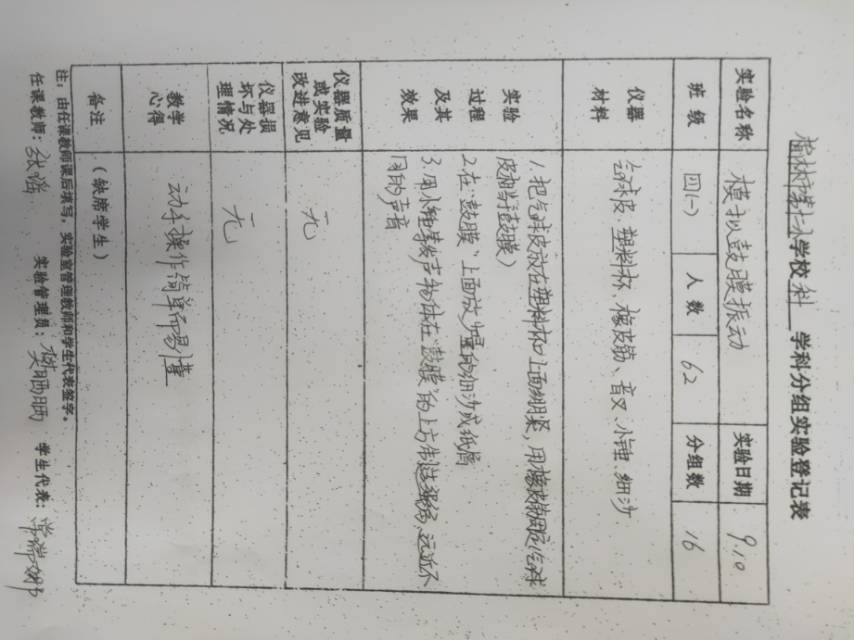 榆林市第十小学校 科 学科分组实验登记表
实验名称 模拟鼓膜振动 实验日期 9.10
班级 四(一) 人数 62 分组数 16
仪器材料 气球皮、塑料杯、橡皮筋、音叉、小锤、细沙
实验过程及其效果
1.把气球皮放在塑料杯口上面绷紧,用橡皮筋固定(气球
皮相当于鼓膜)
2.在“鼓膜”上面放少量的细沙或纸屑
3.用小锤等发声物体在“鼓膜”的上方制造强弱、远近不
同的声音
仪器质量或实验改进意见 无
仪器损坏与处理情况 无
教学心得 动手操作简单而易懂
备注 (缺席学生)
注:由任课教师课后填写,实验室管理教师和学生代表签字。
任课教师: 张瑶 实验管理员: 学生代表: